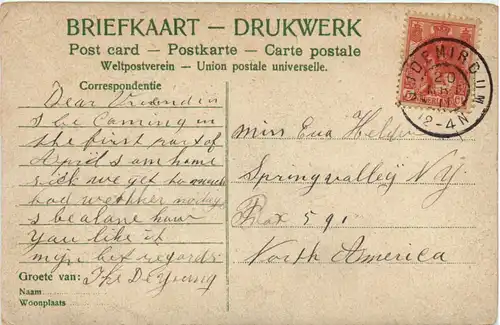 BRIEFKAART — DRUKWERK
Post card — Postkarte — Carte postale
Weltpostverein — Union postale universelle.
Correspondentie
Dear Vrienden
I be Coming in
the first part of
April I am home
sick we get to much
bad wetther nodays
I be alone how
You like it
mijn bet regards
Groete van: De Young
Naam
Woonplaats
OUDEMIRDUM
20
12-4N
Miss Eva
Springvalley N.Y.
Box 591
North America